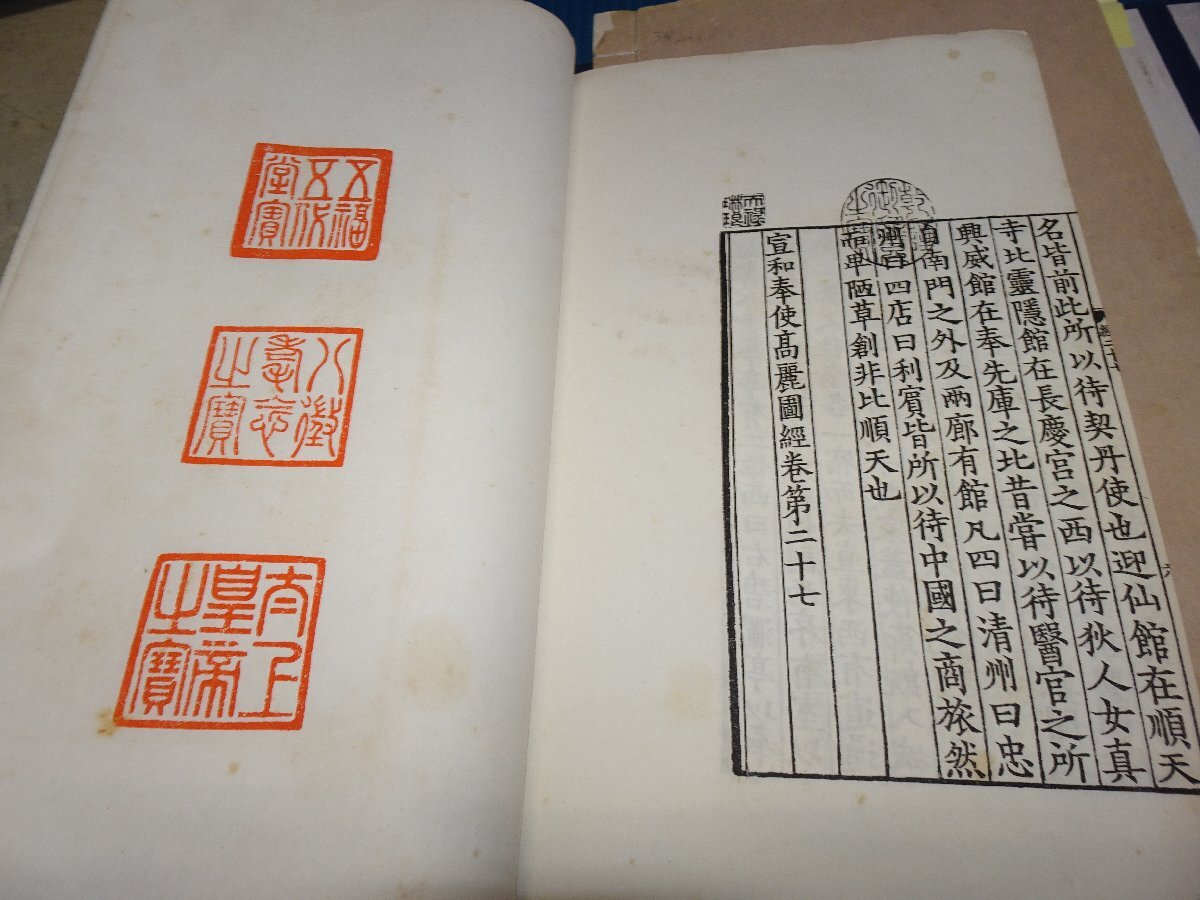 名皆前此所以待契丹使也迎仙館在順天
寺比靈隱館在長慶宮之西以待狄人女真
興威館在奉先庫之比昔嘗以待醫官之所
自南門之外及兩廊有館凡四曰清州曰忠
州曰四店曰利賓皆所以待中國之商旅然
而卑陋草創非比順天也
宣和奉使髙麗圖經卷第二十七
天祿
琳琅
五福
五代
堂寶
八徵
耄念
之寶
太上
皇帝
之寶